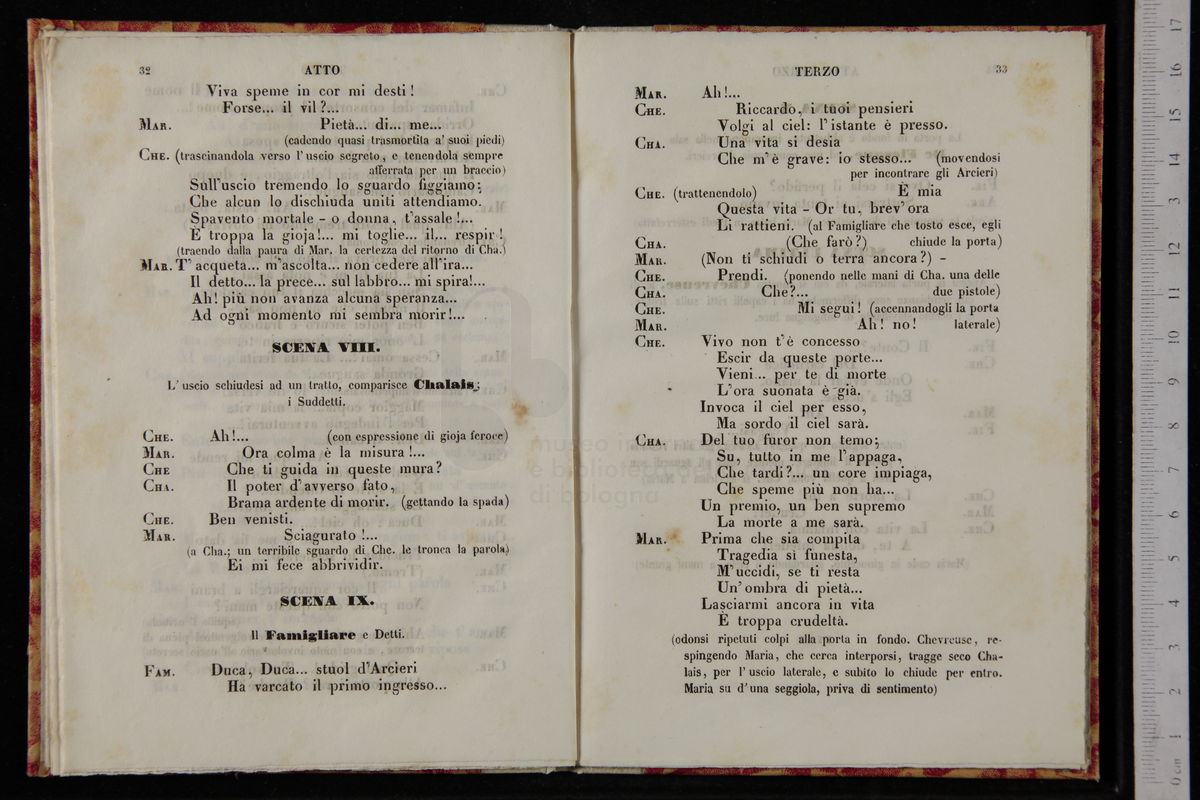 32 ATTO
Viva speme in cor mi desti!
Forse... il vil?...
MAR. Pietà... di... me...
(cadendo quasi trasmortita a' suoi piedi)
CHE. (trascinandola verso l'uscio segreto, e tenendola sempre
afferrata per un braccio)
Sull'uscio tremendo lo sguardo figgiamo;
Che alcun lo dischiuda uniti attendiamo.
Spavento mortale - o donna, t'assale!...
E troppa la gioja!... mi toglie... il... respir!
(traendo dalla paura di Mar. la certezza del ritorno di Cha.)
MAR. T'acqueta... m'ascolta... non cedere all'ira...
Il detto... la prece... sul labbro... mi spira!...
Ah! più non avanza alcuna speranza...
Ad ogni momento mi sembra morir!...
SCENA VIII.
L'uscio schiudesi ad un tratto, comparisce Chalais;
i Suddetti.
CHE. Ah!... (con espressione di gioja feroce)
MAR. Ora colma è la misura!...
CHE Che ti guida in queste mura?
CHA. Il poter d'avverso fato,
Brama ardente di morir. (gettando la spada)
CHE. Ben venisti.
MAR. Sciagurato!...
(a Cha.; un terribile sguardo di Che. le tronca la parola)
Ei mi fece abbrividir.
SCENA IX.
Il Famigliare e Detti.
FAM. Duca, Duca... stuol d'Arcieri
Ha varcato il primo ingresso...
TERZO 33
MAR. Ah!...
CHE. Riccardo, i tuoi pensieri
Volgi al ciel: l'istante è presso.
CHA. Una vita si desia
Che m'è grave: io stesso... (movendosi
per incontrare gli Arcieri)
CHE. (trattenendolo) È mia
Questa vita - Or tu, brev'ora
Li rattieni. (al Famigliare che tosto esce, egli
CHA. (Che farò?) chiude la porta)
MAR. (Non ti schiudi o terra ancora?) -
CHE. Prendi. (ponendo nelle mani di Cha. una delle
CHA. Che?... due pistole)
CHE. Mi segui! (accennandogli la porta
MAR. Ah! no! laterale)
CHE. Vivo non t'è concesso
Escir da queste porte...
Vieni... per te di morte
L'ora suonata è già.
Invoca il ciel per esso,
Ma sordo il ciel sarà.
CHA. Del tuo furor non temo;
Su, tutto in me l'appaga,
Che tardi?... un core impiaga,
Che speme più non ha...
Un premio, un ben supremo
La morte a me sarà.
MAR. Prima che sia compita
Tragedia sì funesta,
M'uccidi, se ti resta
Un'ombra di pietà...
Lasciarmi ancora in vita
È troppa crudeltà.
(odonsi ripetuti colpi alla porta in fondo. Chevreuse, re-
spingendo Maria, che cerca interporsi, tragge seco Cha-
lais, per l'uscio laterale, e subito lo chiude per entro.
Maria su d'una seggiola, priva di sentimento)